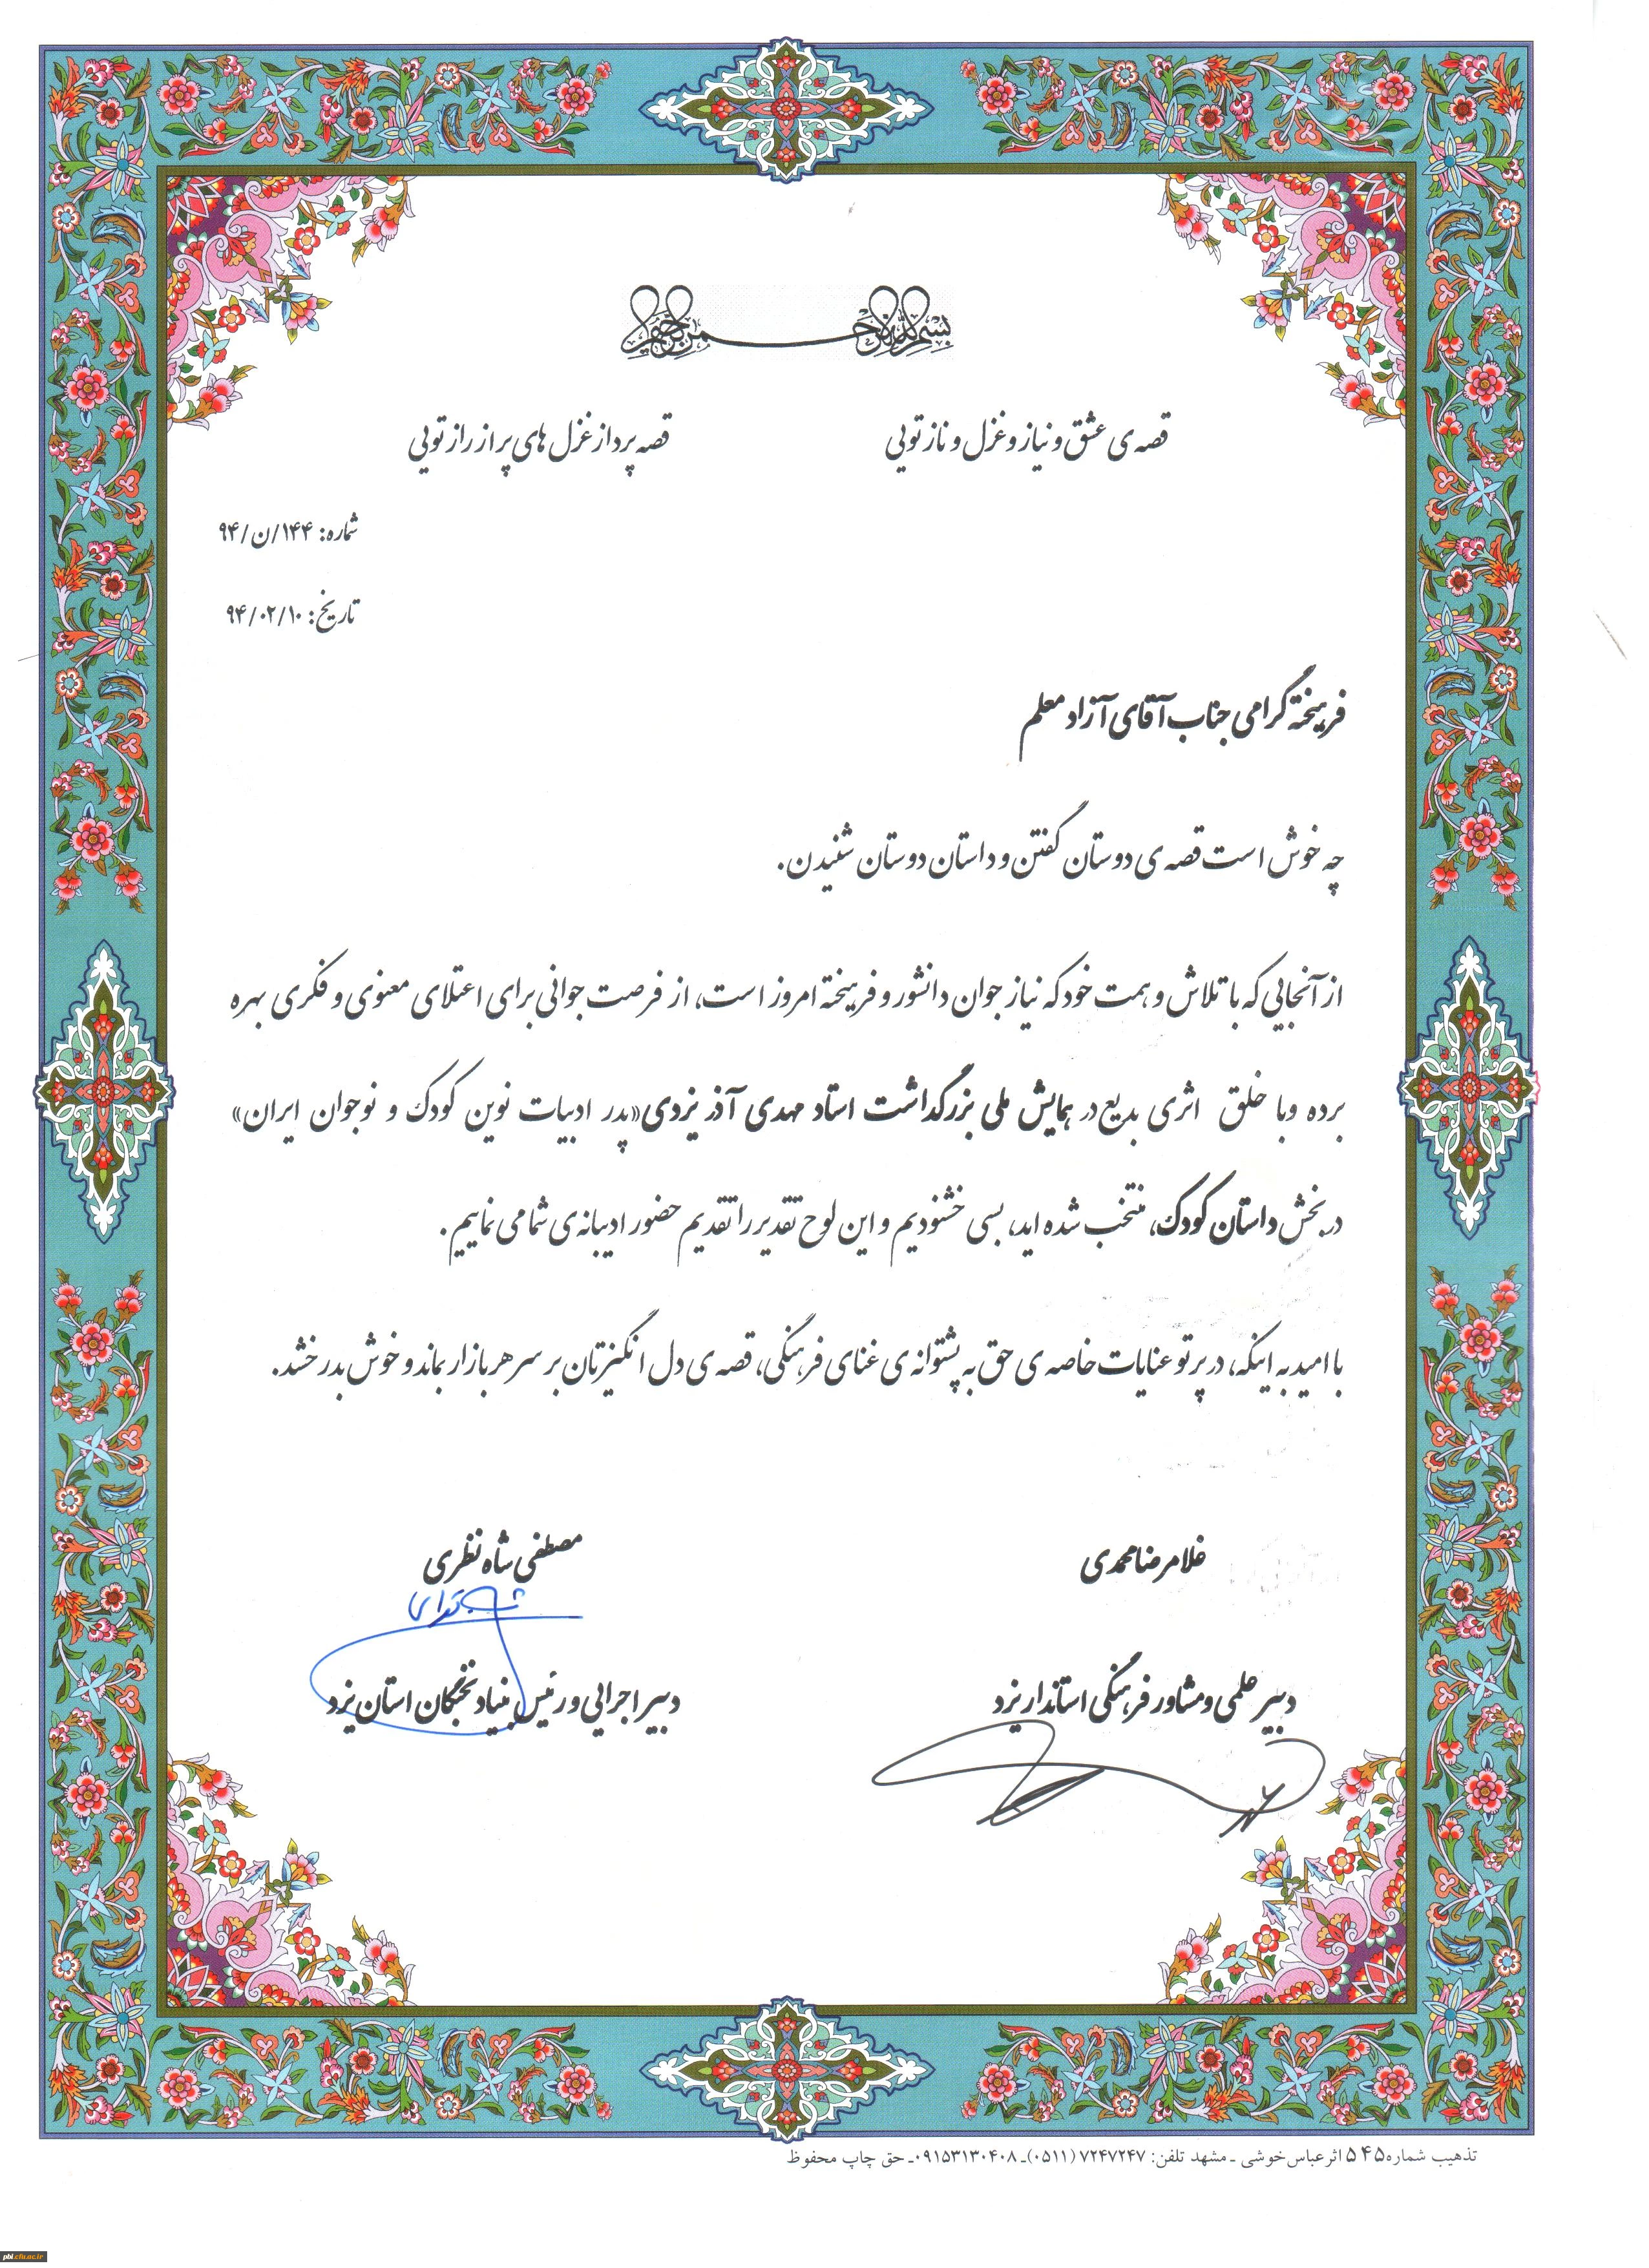 بسم الله الرحمن الرحیم
قصه ی عشق و نیاز و غزل و ناز تویی قصه پرداز غزل های پر از راز تویی
شماره: ۱۴۴/ن/۹۴
تاریخ: ۹۴/۰۲/۱۰
فرهیختهٔ گرامی جناب آقای آزاد معلم
چه خوش است قصه ی دوستان گفتن و داستان دوستان شنیدن.
از آنجایی که با تلاش و همت خود که نیاز جوان دانشور و فرهیختهٔ امروز است، از فرصت جوانی برای اعتلای معنوی و فکری بهره
برده وبا خلق اثری بدیع در همایش ملی بزرگداشت استاد مهدی آذر یزدی «پدر ادبیات نوین کودک و نوجوان ایران»
در بخش داستان کودک، منتخب شده اید، بسی خشنودیم و این لوح تقدیر را تقدیم حضور ادیبانه ی شما می نماییم.
با امید به اینکه، در پرتو عنایات خاصه ی حق به پشتوانه ی غنای فرهنگی، قصه ی دل انگیزتان بر سر هر بازار بماند و خوش بدرخشد.
غلامرضا محمدی مصطفی شاه نظری
دبیر علمی و مشاور فرهنگی استاندار یزد دبیر اجرایی و رئیس بنیاد نخبگان استان یزد
تذهیب شماره ۵۴۵ اثر عباس خوشی ـ مشهد تلفن: ۷۲۴۷۲۴۷ (۰۵۱۱)ـ ۰۹۱۵۳۱۳۰۴۰۸ـ حق چاپ محفوظ
pbi.cfu.ac.ir